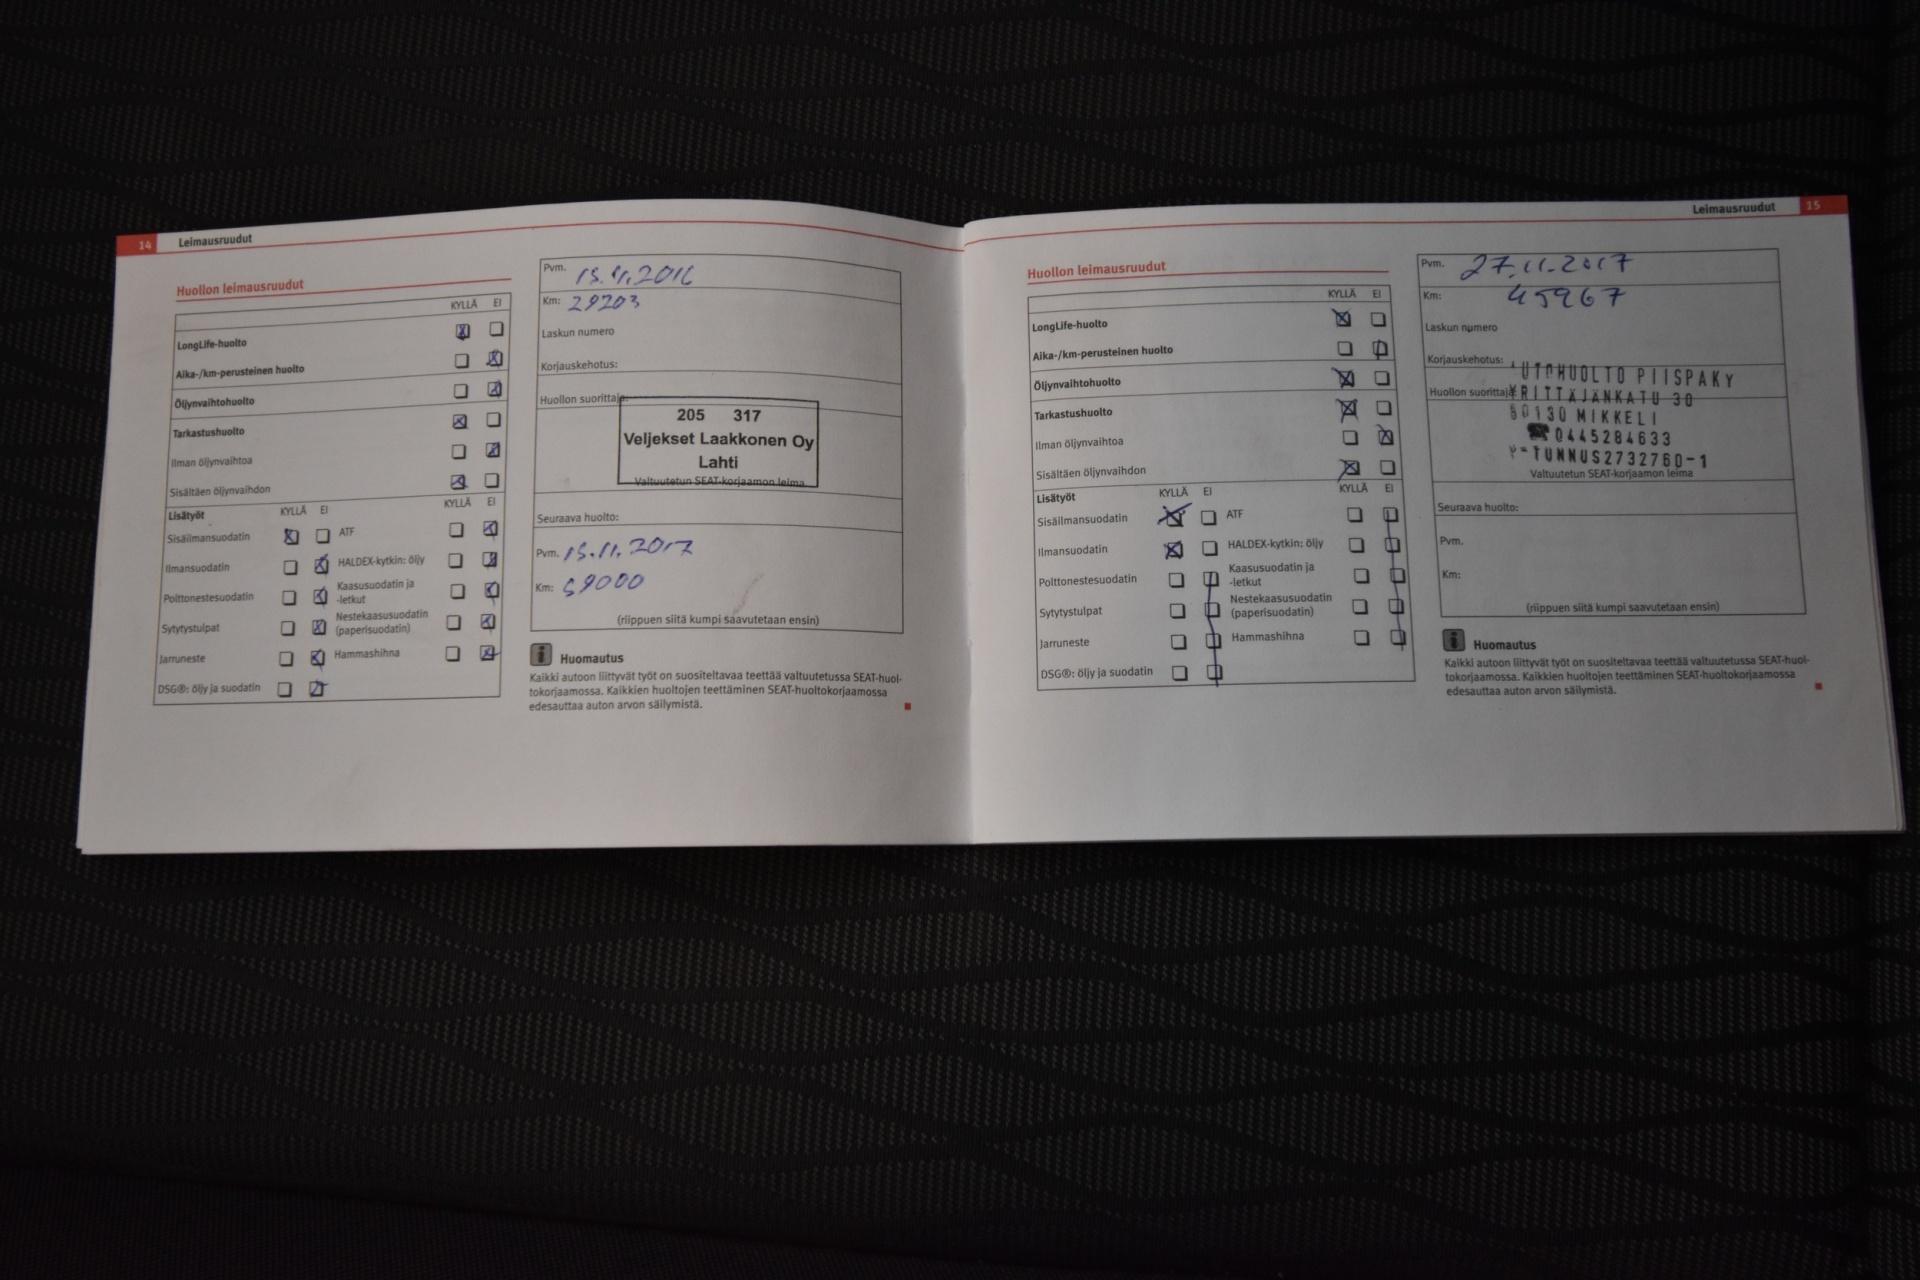 14 Leimausruudut
Huollon leimausruudut
KYLLÄ EI
LongLife-huolto
Aika-/km-perusteinen huolto
Öljynvaihtohuolto
Tarkastushuolto
Ilman öljynvaihtoa
Sisältäen öljynvaihdon
Lisätyöt KYLLÄ EI KYLLÄ EI
Sisäilmansuodatin ATF
Ilmansuodatin HALDEX-kytkin: öljy
Polttonestesuodatin Kaasusuodatin ja
-letkut
Sytytystulpat Nestekaasusuodatin
(paperisuodatin)
Jarruneste Hammashihna
DSG®: öljy ja suodatin
Pvm. 15.11.2016
Km: 29203
Laskun numero
Korjauskehotus:
Huollon suorittaja:
205 317
Veljekset Laakkonen Oy
Lahti
Valtuutetun SEAT-korjaamon leima
Seuraava huolto:
Pvm. 15.11.2017
Km: 59000
(riippuen siitä kumpi saavutetaan ensin)
Huomautus
Kaikki autoon liittyvät työt on suositeltavaa teettää valtuutetussa SEAT-huol-
tokorjaamossa. Kaikkien huoltojen teettäminen SEAT-huoltokorjaamossa
edesauttaa auton arvon säilymistä.
Leimausruudut 15
Huollon leimausruudut
KYLLÄ EI
LongLife-huolto
Aika-/km-perusteinen huolto
Öljynvaihtohuolto
Tarkastushuolto
Ilman öljynvaihtoa
Sisältäen öljynvaihdon
Lisätyöt KYLLÄ EI KYLLÄ EI
Sisäilmansuodatin ATF
Ilmansuodatin HALDEX-kytkin: öljy
Polttonestesuodatin Kaasusuodatin ja
-letkut
Sytytystulpat Nestekaasusuodatin
(paperisuodatin)
Jarruneste Hammashihna
DSG®: öljy ja suodatin
Pvm. 27.11.2017
Km: 45967
Laskun numero
Korjauskehotus:
AUTOHUOLTO PIISPAKY
Huollon suorittaja:
YRITTÄJÄNKATU 30
50130 MIKKELI
☎ 0445284633
Y-TUNNUS2732760-1
Valtuutetun SEAT-korjaamon leima
Seuraava huolto:
Pvm.
Km:
(riippuen siitä kumpi saavutetaan ensin)
Huomautus
Kaikki autoon liittyvät työt on suositeltavaa teettää valtuutetussa SEAT-huol-
tokorjaamossa. Kaikkien huoltojen teettäminen SEAT-huoltokorjaamossa
edesauttaa auton arvon säilymistä.